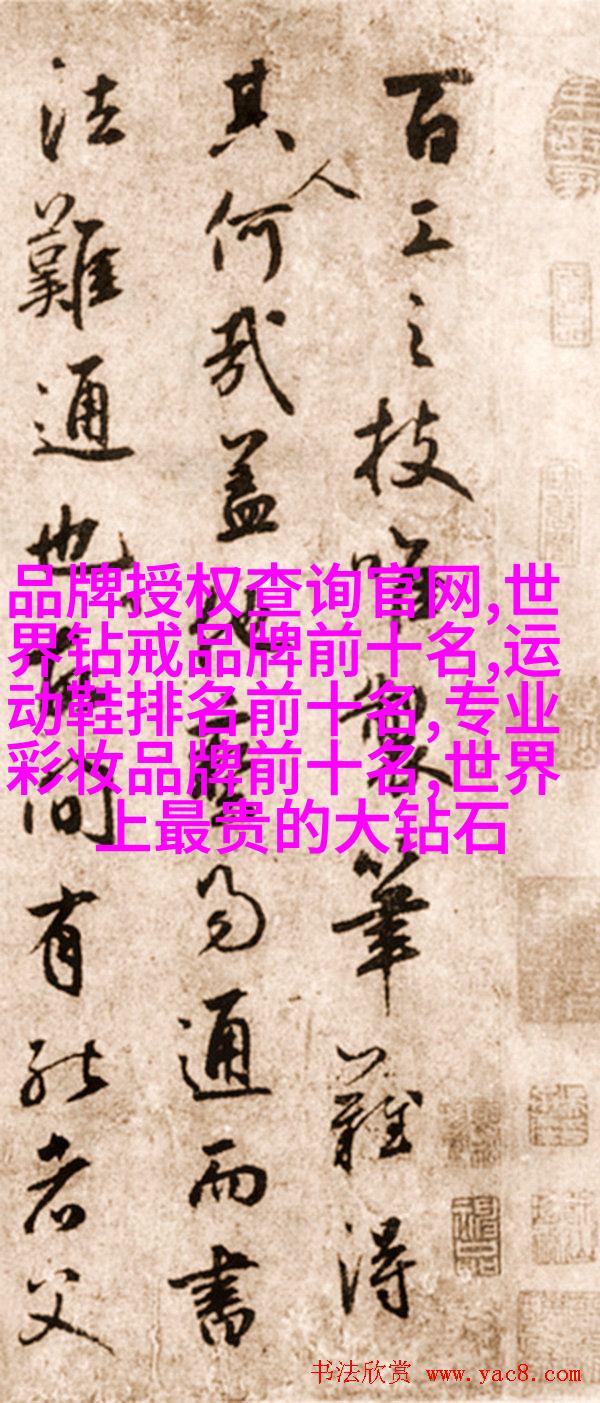 百工之技唯製筆難得
其人何哉蓋地易通而書
法難通也間有能者父
品牌授权查询官网,世
界钻戒品牌前十名,运
动鞋排名前十名,专业
彩妆品牌前十名,世界
上最贵的大钻石
书法欣赏 www.yac8.com